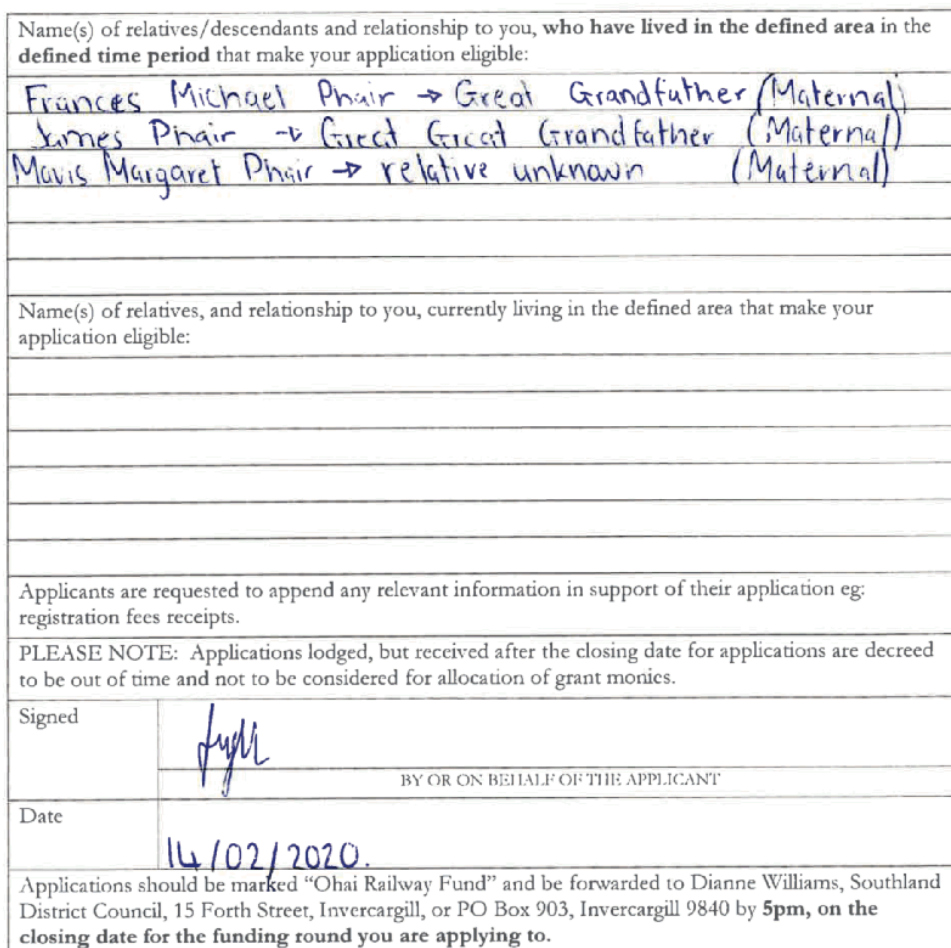 Name(s) of relatives/descendants and relationship to you, who have lived in the defined area in the
defined time period that make your application eligible:
Frances Michael Phair → Great Grandfather (Maternal)
James Phair → Great Great Grandfather (Maternal)
Mavis Margaret Phair → relative unknown (Maternal)
Name(s) of relatives, and relationship to you, currently living in the defined area that make your
application eligible:
Applicants are requested to append any relevant information in support of their application eg:
registration fees receipts.
PLEASE NOTE: Applications lodged, but received after the closing date for applications are decreed
to be out of time and not to be considered for allocation of grant monies.
Signed
BY OR ON BEHALF OF THE APPLICANT
Date
14/02/2020.
Applications should be marked “Ohai Railway Fund” and be forwarded to Dianne Williams, Southland
District Council, 15 Forth Street, Invercargill, or PO Box 903, Invercargill 9840 by 5pm, on the
closing date for the funding round you are applying to.